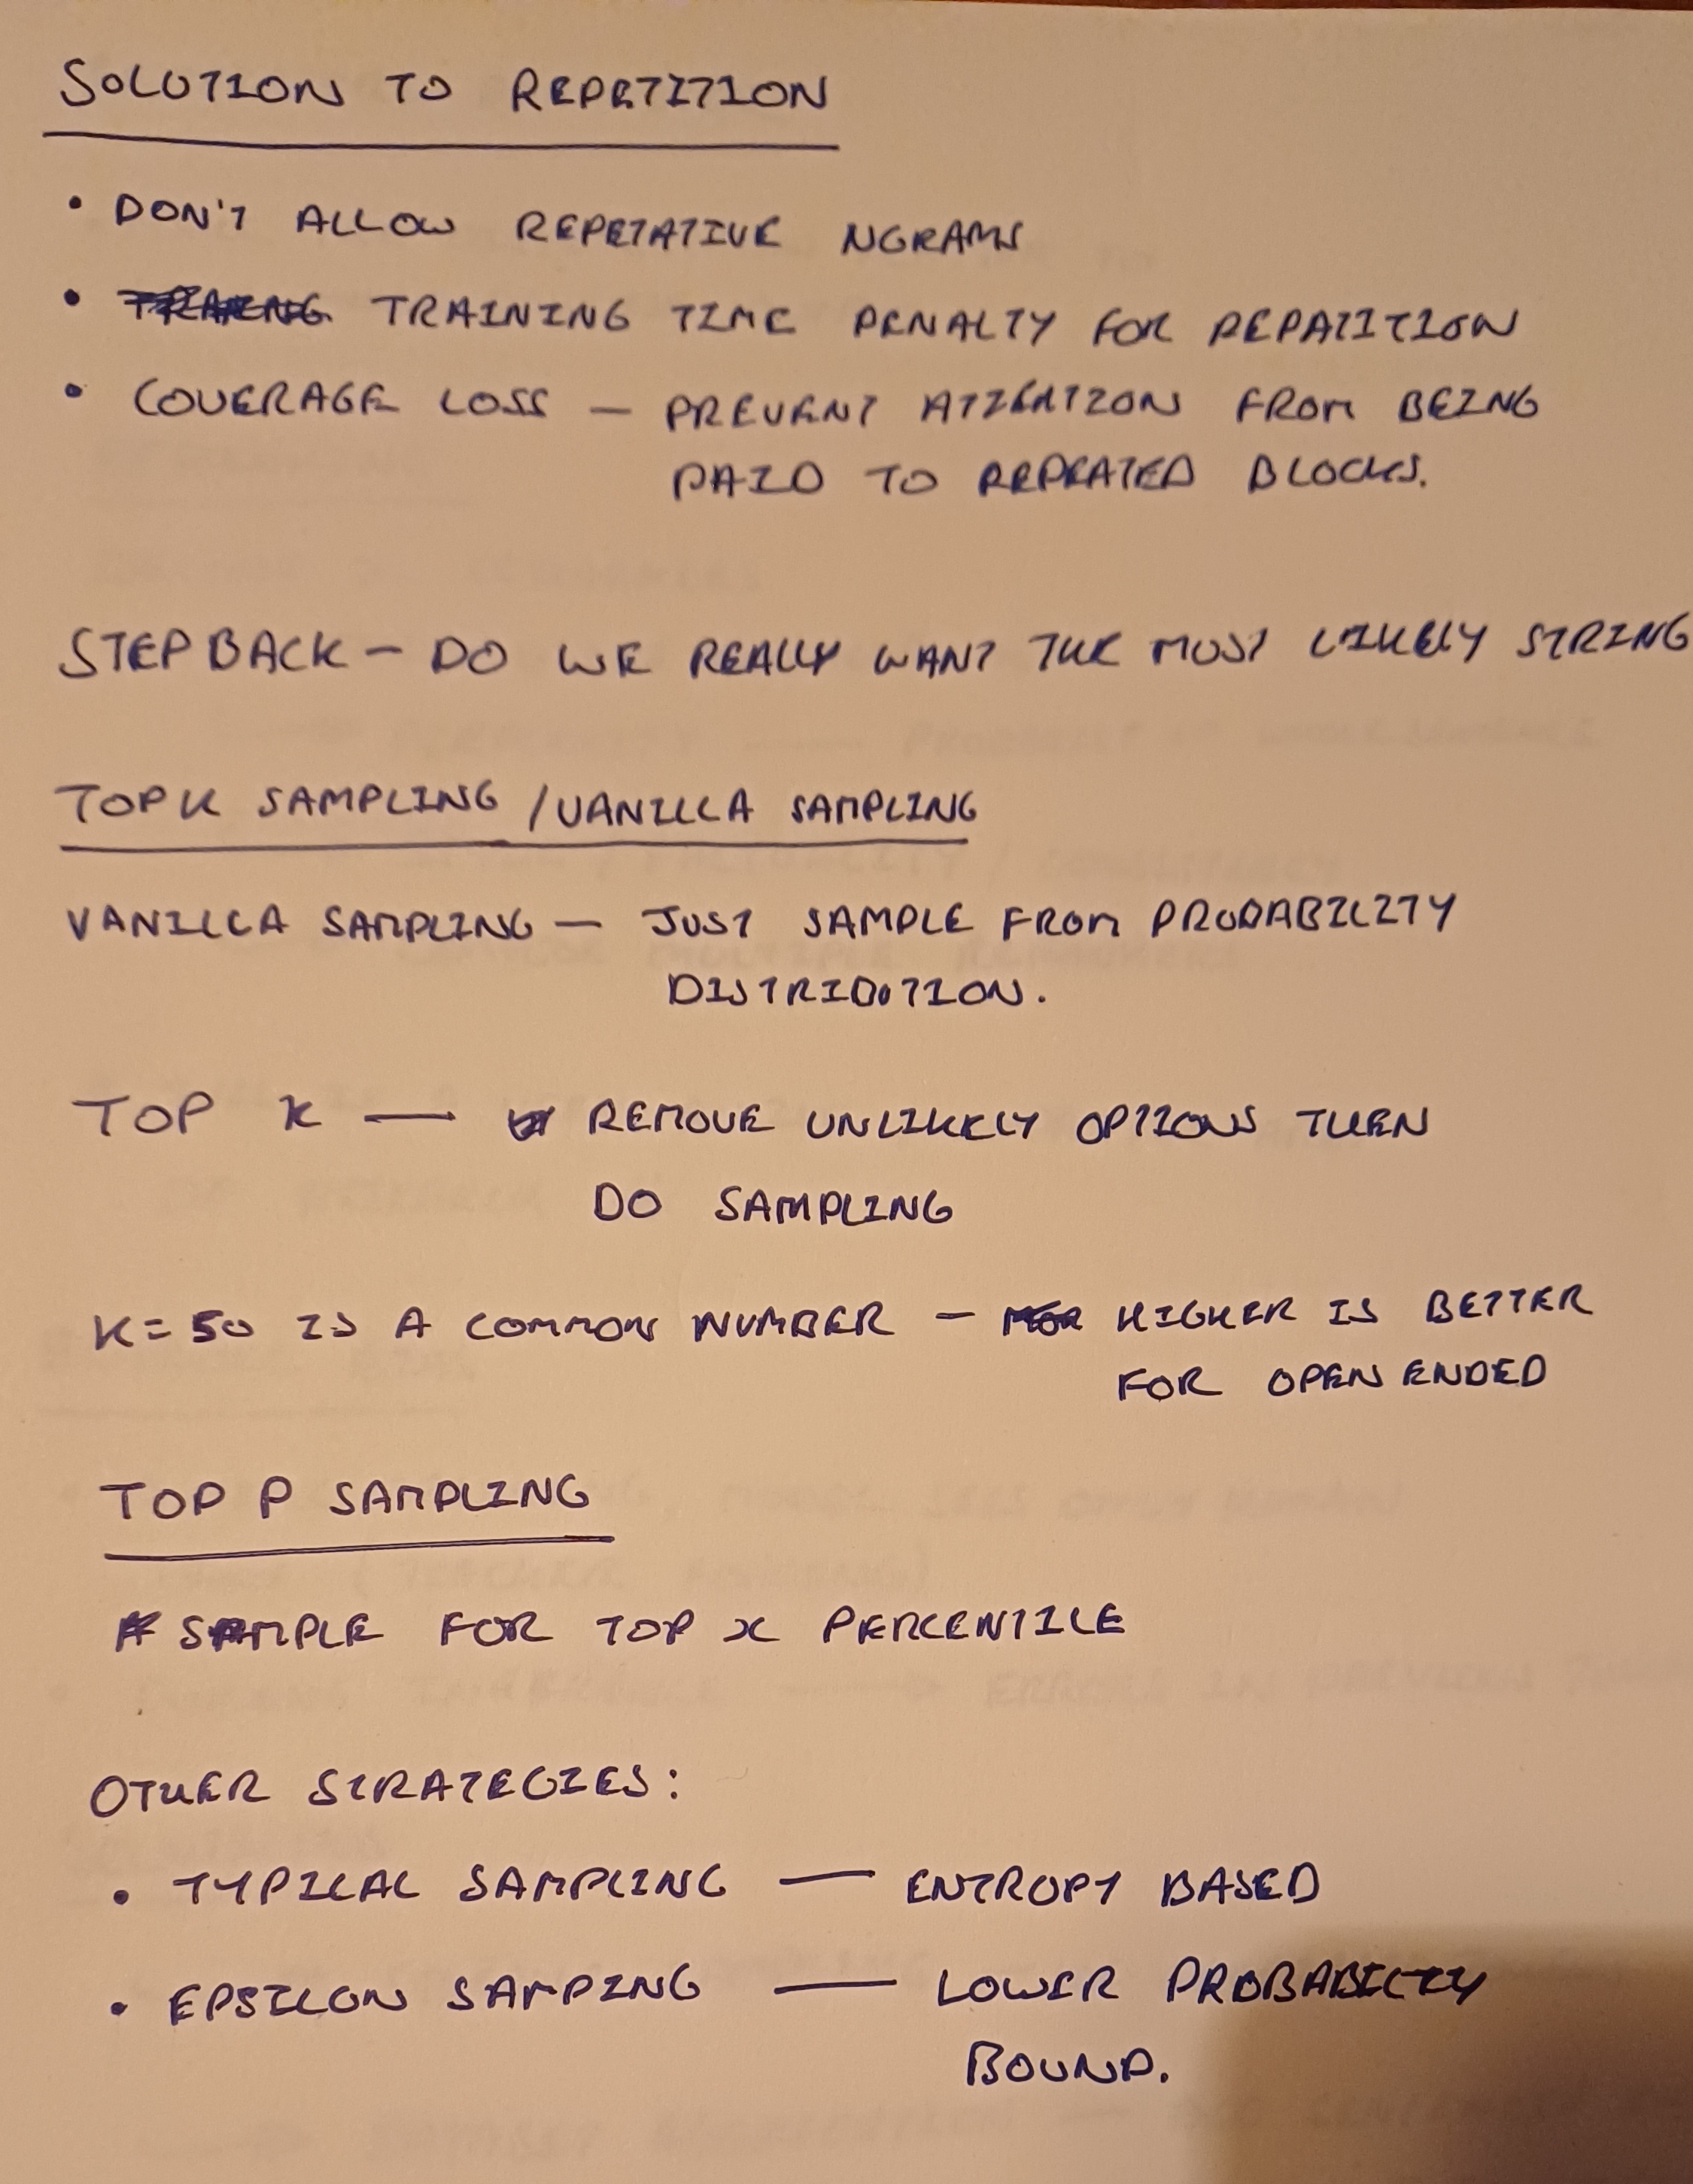 SOLUTION TO REPETITION
• DON'T ALLOW REPETATIVE NGRAMS
• TRAINING TIME PENALTY FOR REPATITION
• COVERAGE LOSS — PREVENT ATTENTION FROM BEING
PAID TO REPEATED BLOCKS.
STEP BACK — DO WE REALLY WANT THE MOST LIKELY STRING
TOP K SAMPLING / VANILLA SAMPLING
VANILLA SAMPLING — JUST SAMPLE FROM PROBABILITY
DISTRIBUTION.
TOP K — REMOVE UNLIKELY OPTIONS THEN
DO SAMPLING
K=50 IS A COMMON NUMBER — HIGHER IS BETTER
FOR OPEN ENDED
TOP P SAMPLING
SAMPLE FOR TOP x PERCENTILE
OTHER STRATEGIES:
• TYPICAL SAMPLING — ENTROPY BASED
• EPSILON SAMPING — LOWER PROBABILITY
BOUND.